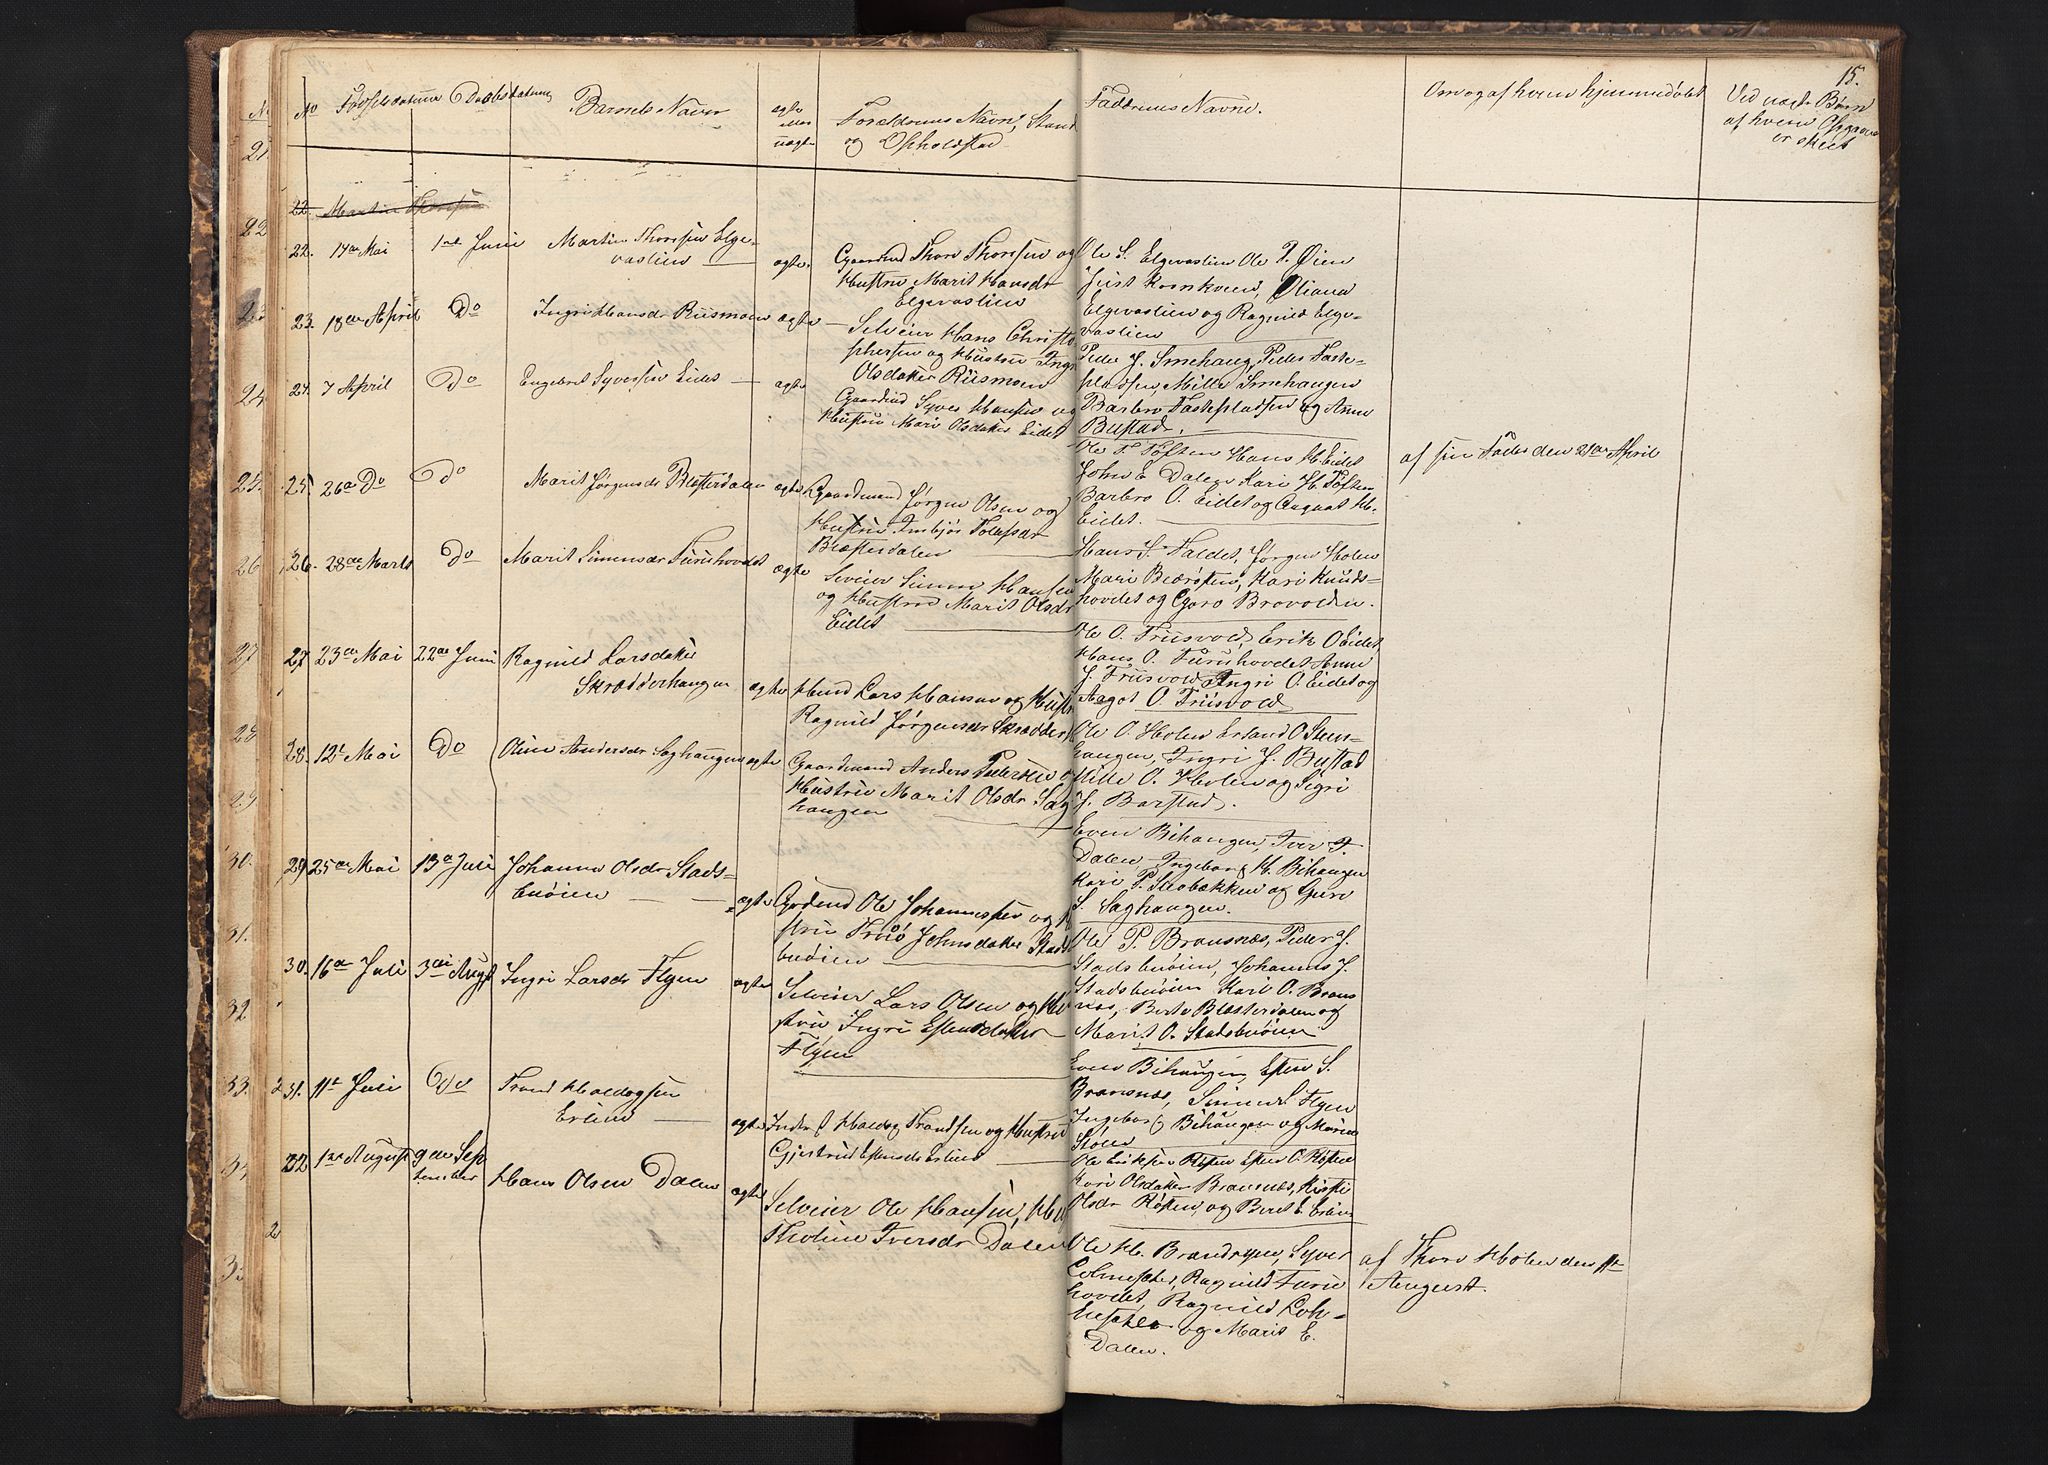 15.
No
Fødselsdatum
Daabsdatum
Barnets Navn
ægte
eller
uægte
Forældrenes Navn, Stand
og Opholdsted
Faddernes Navne.
Om og af hvem hjemmedøbt
Ved uægte Børn
af hvem Angivel
er skeet
22. Martin Thorsen
22. 14de Mai
1ste Juni
Martin Thorsen Elge-
vaslien
ægte.
Gaardmd Thore Thorsen og
Hustru Marit Hansdr
Elgevaslien
Ole S. Elgevaslien Ole P. Øien
Just Kornkveen, Oliana
Elgevaslien og Ragnild Elge-
vaslien
23. 18de April
Do
Ingri Hansdr Riismoen
ægte
Selveier Hans Christo
phersen og Hustru Ingri
Olsdater Riismoen
Peder J. Smehaug, Peder Faste-
pladsen, Mille Smehaugen
Barbro Fastepladsen og Anne
Bustad.
24. 7 April
Do
Engebret Syversen Eidet
ægte
Gaardmd Syver Hansen og
Hustru Mari Olsdater Eidet
Ole T. Toften Hans H. Eidet
John E Dalen Kari H. Toften
Barbro O. Eidet og August H.
Eidet.
af sin Fader den 21de April
25. 26de Do
Do
Marit Jørgensdr Blæsterdalen
ægte
Gaardmand Jørgen Olsen og
Hustru Imbjør Tolefsdr
Blæsterdalen
Hans J. Faldet, Jørgen Holen
Mari Bierøsten, Kari Knuds-
hovdet og Goro Brovolden.
26. 28de Marts
Do
Marit Simensdr Furuhovdet
ægte
Selveier Simen Hansen
og Hustru Marit Olsdr
Eidet
Ole O. Friisvold, Erik O Eidet,
Hans O. Furuhovdet Anne
J. Friisvold Ingri O. Eidet og
Aagot O. Friisvold
27. 23de Mai
22de Juni
Ragnild Larsdater
Skrædderhaugen
ægte
Hmd Lars Hansen og Hustru
Ragnild Jørgensdr Skrædder
Ole O. Holen Erland O Steen-
haugen, Ingri J. Bustad
Mille O. Holen og Sigri
J. Barstad.
28. 12t Mai
Do
Oline Andersdr Saghaugen
ægte
Gaardmand Anders Pedersen o
Hustru Marit Olsdr Sag
haugen
Even Bihaugen, Iver I.
Dalen, Ingebor H. Bihaugen
Kari P. Stobækken og Guri
S. Saghaugen.
29 25de Mai
13de Juli
Johanne Olsdr Stads-
buøien
ægte
Grdmd Ole Johannessen og H
stru Friiø Johnsdater Stads
buøien
Ole P. Bransnæs, Peder J.
Stadsbuøien, Johannes J.
Stadsbuøien Kari O. Brans
næs, Berte Blæsterdalen og
Marit O. Stadsbuøien
30. 16de Juli
3die Augst
Ingri Larsdr Flyen
ægte
Selveier Lars Olsen og Hu
stru Ingri Estensdater
Flyen
Even Bihaugen Esten S.
Bransnæs, Simen S Flyen
Ingebor Bihaugen og Marie
Stoen
31. 11t Juli
Do
Trond Haldogsen
Erlien
ægte
Inderst Haldog Trondsen og Hustru
Gjertrud Estensdr Erlien
Ole Eriksen Røsten Esten O. Røsten
Kari Olsdater Bransnæs, Kirsti
Olsdr Røsten, og Beret E. Erlien
32 1ste August
9de Sep
tember
Hans Olsen Dalen
ægte
Selveier Ole Hansen, Hu
Tholine Iversdr Dalen
Ole H. Brandryen, Syver
Lohnesøter, Ragnild Furu
hovdet, Ragnild Loh-
nesøter og Marit E.
Dalen.
af Thore Holen den 11te
August.